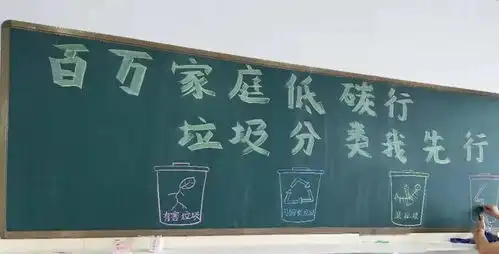 百万家庭低碳行
垃圾分类我先行
有害垃圾
可回收垃圾